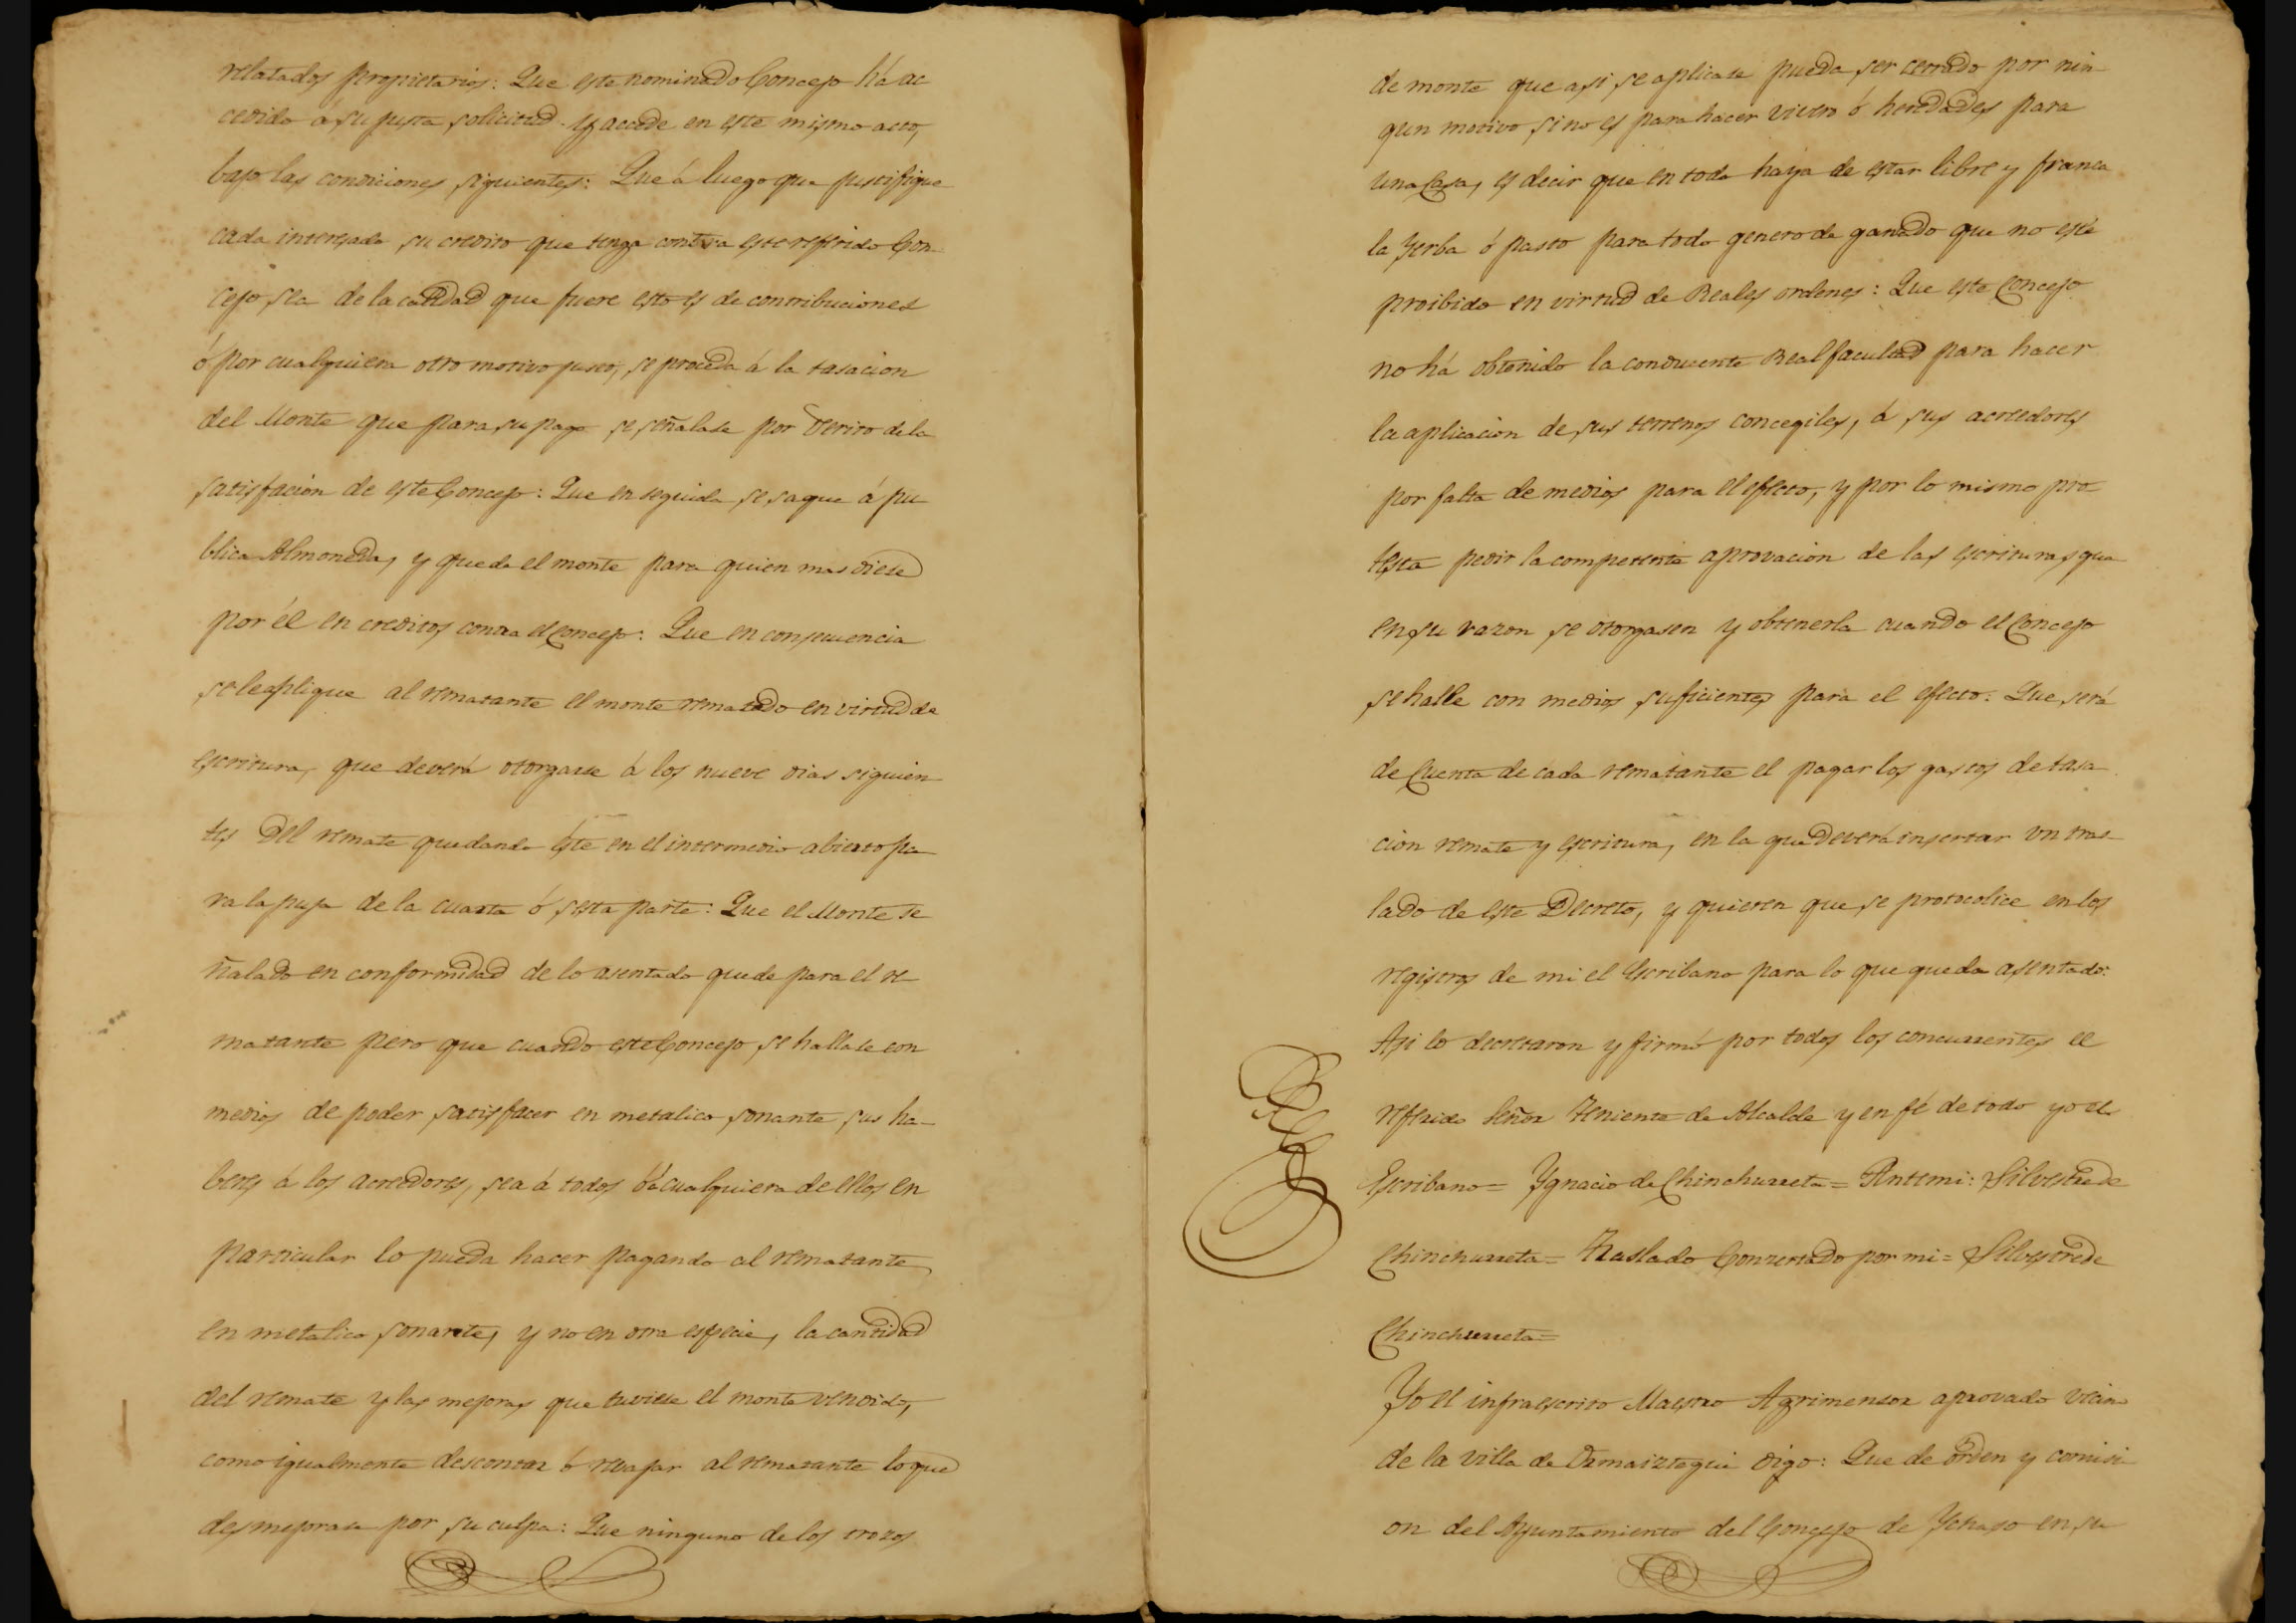 relatados propietarios: Que este nominado Concejo há ac
cedido á su justa solicitud. Y accede en este mismo acto,
bajo las condiciones siguientes: Que á luego que justifique
cada interesado su credito que tenga contra este referido Con-
cejo sea de la calidad que fuere esto es de contribuciones
ó por cualquiera otro motivo justo, se proceda á la tasacion
del Monte que para su pago se señalase por Perito de la
satisfacion de este Concejo: Que en seguida se saque á pu
blica Almoneda, y quede el monte para quien mas diese
por él en creditos contra el Concejo: Que en consecuencia
se le aplique al rematante el monte rematado en virtud de
escritura, que deverá otorgarse á los nueve dias siguien
tes del remate quedando éste en el intermedio abierto pa
ra la puja de la cuarta ó sesta parte: Que el Monte se
ñalado en conformidad de lo asentado quede para el re-
matante pero que cuando este Concejo se hallase con
medios de poder satisfacer en metalico sonante sus ha-
beres á los acreedores, sea á todos ó á cualquiera de ellos en
particular lo pueda hacer pagando al rematante
en metalico sonante, y no en otra especie, la cantidad
del remate y las mejoras que tuviese el monte vendido,
como igualmente descontar ó revajar al rematante lo que
desmejorase por su culpa: Que ninguno de los trozos
de monte que asi se aplicase pueda ser cerrado por nin-
gun motivo sino es para hacer vivero ó heredades para
una Casa, es decir que en todo haya de estar libre y franca
la Yerba ó pasto para todo genero de ganado que no esté
proibido en virtud de Reales ordenes: Que este Concejo
no há obtenido la conducente Real facultad para hacer
la aplicacion de sus terrenos concegiles, á sus acreedores
por falta de medios para el efecto, y por lo mismo pro
testa pedir la competente aprovacion de las escrituras que
en su razon se otorgasen y obtenerla cuando el Concejo
se halle con medios suficientes para el efecto: Que será
de Cuenta de cada rematante el pagar los gastos de tasa
cion remate y escritura, en la que deverá insertar un tras-
lado de este Decreto, y quieren que se protocolice en los
registros de mi el Escribano para lo que queda asentado:
Asi lo decretaron y firmó por todos los concurrentes el
referido Señor Teniente de Alcalde y en fé de todo yo el
Escribano= Ygnacio de Chinchurreta= Ante mi: Silvestre de
Chinchurreta= Traslado Concertado por mi= Silvestre de
Chinchurreta=
Yo el infraescrito Maestro Agrimensor aprovado vecino
de la villa de Ormaiztegui digo: Que de orden y comisi
on del Ayuntamiento del Concejo de Ychaso en su